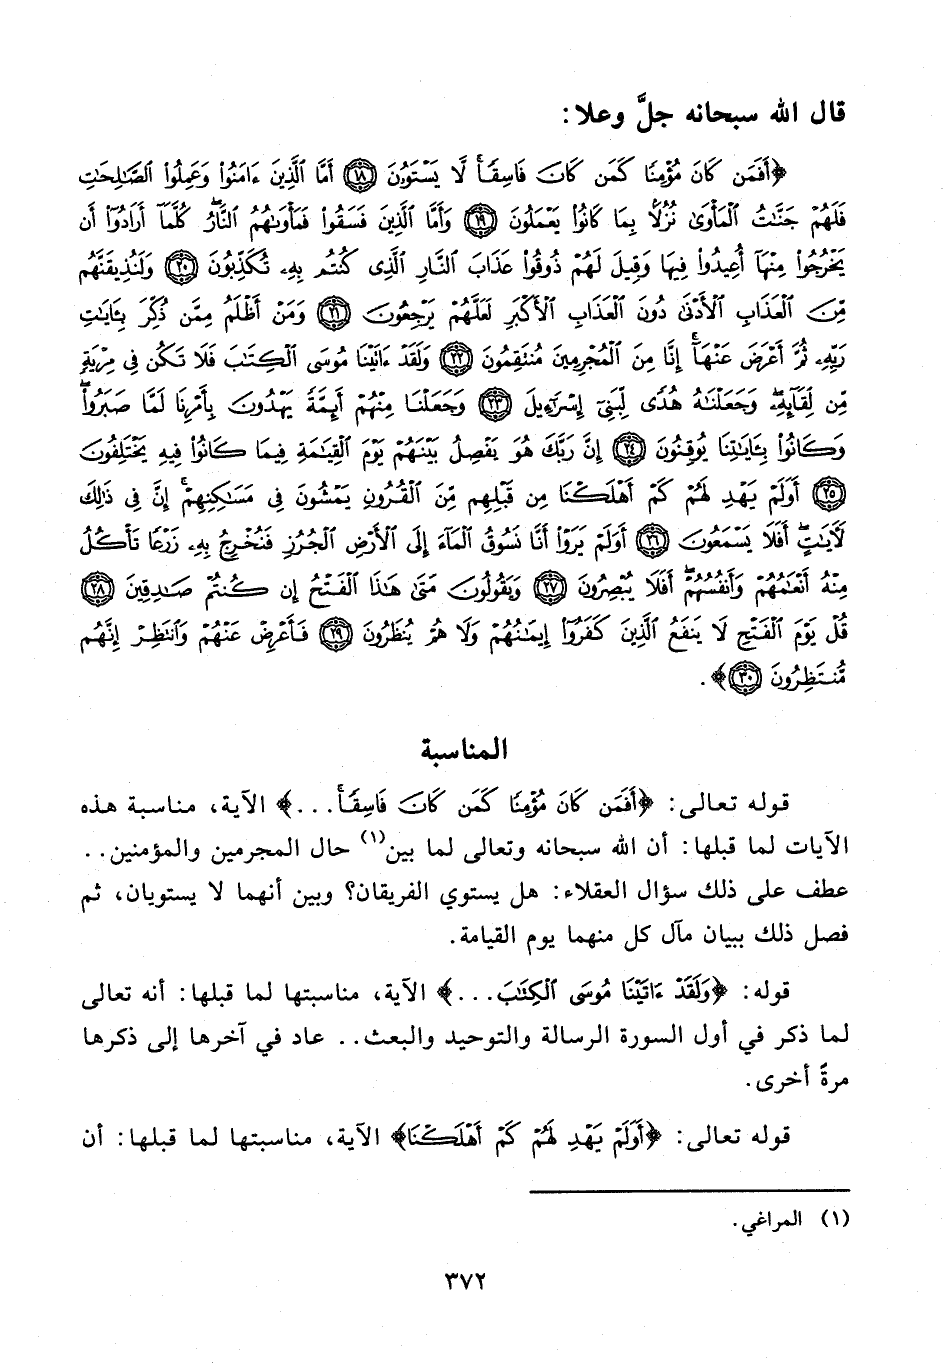 قال الله سبحانه جلَّ وعلا:
﴿أَفَمَن كَانَ مُؤْمِنًا كَمَن كَانَ فَاسِقًا ۚ لَّا يَسْتَوُۥنَ ﴿١٨﴾ أَمَّا ٱلَّذِينَ ءَامَنُوا۟ وَعَمِلُوا۟ ٱلصَّـٰلِحَـٰتِ
فَلَهُمْ جَنَّـٰتُ ٱلْمَأْوَىٰ نُزُلًۢا بِمَا كَانُوا۟ يَعْمَلُونَ ﴿١٩﴾ وَأَمَّا ٱلَّذِينَ فَسَقُوا۟ فَمَأْوَىٰهُمُ ٱلنَّارُ ۖ كُلَّمَآ أَرَادُوٓا۟ أَن
يَخْرُجُوا۟ مِنْهَآ أُعِيدُوا۟ فِيهَا وَقِيلَ لَهُمْ ذُوقُوا۟ عَذَابَ ٱلنَّارِ ٱلَّذِى كُنتُم بِهِۦ تُكَذِّبُونَ ﴿٢٠﴾ وَلَنُذِيقَنَّهُم
مِّنَ ٱلْعَذَابِ ٱلْأَدْنَىٰ دُونَ ٱلْعَذَابِ ٱلْأَكْبَرِ لَعَلَّهُمْ يَرْجِعُونَ ﴿٢١﴾ وَمَنْ أَظْلَمُ مِمَّن ذُكِّرَ بِـَٔايَـٰتِ
رَبِّهِۦ ثُمَّ أَعْرَضَ عَنْهَآ ۚ إِنَّا مِنَ ٱلْمُجْرِمِينَ مُنتَقِمُونَ ﴿٢٢﴾ وَلَقَدْ ءَاتَيْنَا مُوسَى ٱلْكِتَـٰبَ فَلَا تَكُن فِى مِرْيَةٍ
مِّن لِّقَآئِهِۦ ۖ وَجَعَلْنَـٰهُ هُدًى لِّبَنِىٓ إِسْرَٰٓءِيلَ ﴿٢٣﴾ وَجَعَلْنَا مِنْهُمْ أَئِمَّةً يَهْدُونَ بِأَمْرِنَا لَمَّا صَبَرُوا۟ ۖ
وَكَانُوا۟ بِـَٔايَـٰتِنَا يُوقِنُونَ ﴿٢٤﴾ إِنَّ رَبَّكَ هُوَ يَفْصِلُ بَيْنَهُمْ يَوْمَ ٱلْقِيَـٰمَةِ فِيمَا كَانُوا۟ فِيهِ يَخْتَلِفُونَ
﴿٢٥﴾ أَوَلَمْ يَهْدِ لَهُمْ كَمْ أَهْلَكْنَا مِن قَبْلِهِم مِّنَ ٱلْقُرُونِ يَمْشُونَ فِى مَسَـٰكِنِهِمْ ۚ إِنَّ فِى ذَٰلِكَ
لَـَٔايَـٰتٍ ۖ أَفَلَا يَسْمَعُونَ ﴿٢٦﴾ أَوَلَمْ يَرَوْا۟ أَنَّا نَسُوقُ ٱلْمَآءَ إِلَى ٱلْأَرْضِ ٱلْجُرُزِ فَنُخْرِجُ بِهِۦ زَرْعًا تَأْكُلُ
مِنْهُ أَنْعَـٰمُهُمْ وَأَنفُسُهُمْ ۖ أَفَلَا يُبْصِرُونَ ﴿٢٧﴾ وَيَقُولُونَ مَتَىٰ هَـٰذَا ٱلْفَتْحُ إِن كُنتُمْ صَـٰدِقِينَ ﴿٢٨﴾
قُلْ يَوْمَ ٱلْفَتْحِ لَا يَنفَعُ ٱلَّذِينَ كَفَرُوٓا۟ إِيمَـٰنُهُمْ وَلَا هُمْ يُنظَرُونَ ﴿٢٩﴾ فَأَعْرِضْ عَنْهُمْ وَٱنتَظِرْ إِنَّهُم
مُّنتَظِرُونَ ﴿٣٠﴾﴾.
المناسبة
قوله تعالى: ﴿أَفَمَن كَانَ مُؤْمِنًا كَمَن كَانَ فَاسِقًا ۚ...﴾ الآية، مناسبة هذه
الآيات لما قبلها: أن الله سبحانه وتعالى لما بين(١) حال المجرمين والمؤمنين..
عطف على ذلك سؤال العقلاء: هل يستوي الفريقان؟ وبين أنهما لا يستويان، ثم
فصل ذلك ببيان مآل كل منهما يوم القيامة.
قوله: ﴿وَلَقَدْ ءَاتَيْنَا مُوسَى ٱلْكِتَـٰبَ...﴾ الآية، مناسبتها لما قبلها: أنه تعالى
لما ذكر في أول السورة الرسالة والتوحيد والبعث.. عاد في آخرها إلى ذكرها
مرةً أخرى.
قوله تعالى: ﴿أَوَلَمْ يَهْدِ لَهُمْ كَمْ أَهْلَكْنَا﴾ الآية، مناسبتها لما قبلها: أن
(١) المراغي.
٣٧٢